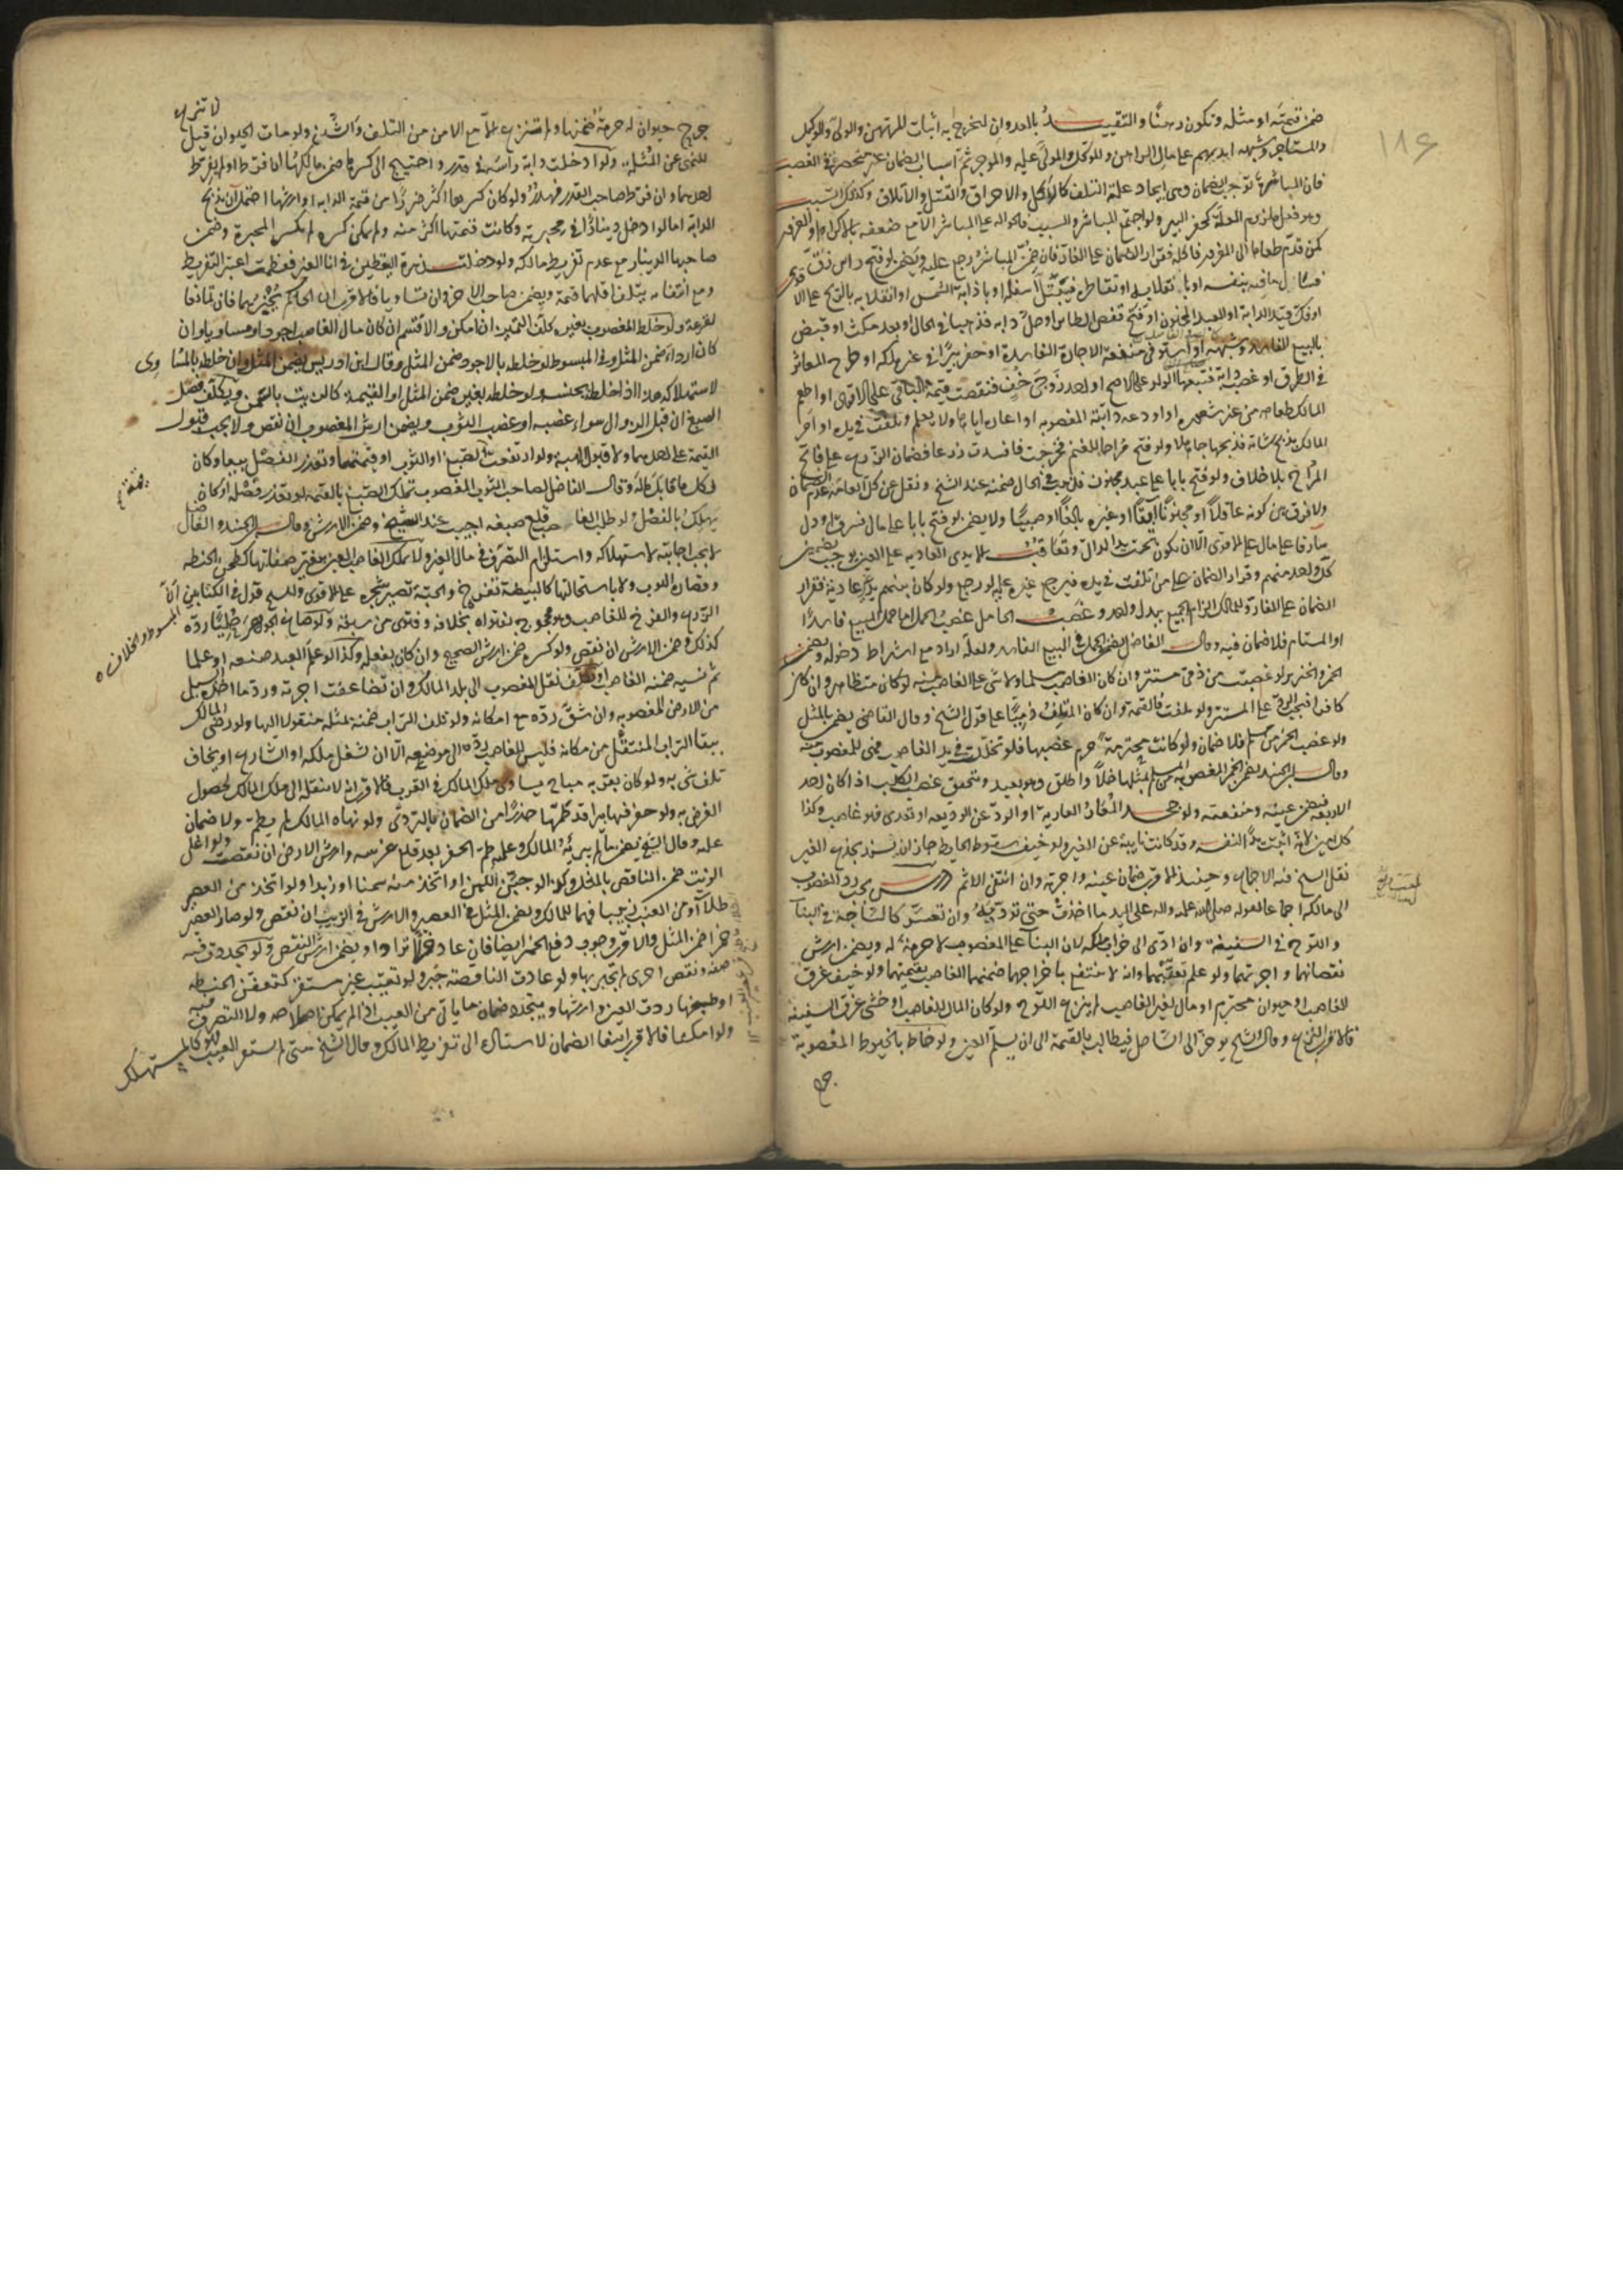 ١٨٤
ضمن قيمته او مثله وتكون رهنًا والتقييد بالعدوان ليخرج به اثبات المرتهن والولي والوكيل
والمستاجر وشبهه ايديهم على مال الراهن والموكل والمولى عليه والموجر ثم اسباب الضمان غير منحصرة في الغصب
فان المباشرة توجب الضمان وهي ايجاد علة التلف كالاكل والاحراق والقتل والاتلاف وكذلك التسبيب
وهو فعل ملزوم العلة كحفر البير ولو اجتمع المباشر والسبب فالحواله على المباشر الا مع ضعفه بالاكراه او الغرور
كمن قدم طعاما الى المغرور فاكله فقرار الضمان على الغار فان ضمن المباشر رجع عليه ويضمن لو فتح راس زق
فسال ما فيه بنفسه او بانقلابه او تقاطره فيبتل اسفله او باذابة الشمس او انقلابه بالريح على
او فك قيد الدابة او العبد المجنون او فتح قفص الطاير او حل دابه فذهبا في الحال او بعد مكث او قبض
بالبيع الفاسد وشبهه او استوفى منفعة الاجارة الفاسدة او حفر بيرًا في غير ملكه او طرح المعاثر
في الطرق او غصب دابة فتبعها الولد على الاصح او احد زوجي خف فنقصت قيمة الباقي على الاقوى او اطعم
المالك طعامه من غير شعوره او اودعه دابته المغصوبه او اعاره اياها ولا يعلم وتلفت في يده او امر
المالك بذبح شاته فذبحها جاهلا ولو فتح مراحا للغنم فخرجت فافسدت زرعا فضمان الزرع على فاتح
المراح بلا خلاف ولو فتح بابا على عبد مجنون فذهب في الحال ضمنه عند الشيخ ونقل عن كل العامة عدم الضمان
ولا فرق بين كونه عاقلًا او مجنونًا آبقًا او غيره بالغًا او صبيًا ولا يضمن لو فتح بابا على مال فسرق او دل
سارقا على مال على الاقوى الا ان يكون تحت يد الدال وتعاقب الايدى العاديه على العين يوجب تضمين
كل واحد منهم وقرار الضمان على من تلفت في يده فيرجع غيره عليه لو رجع ولو كان بينهم يد غير عادية فقرار
الضمان على الغار وللمالك الزام الجميع ببدل واحد وغصب الحامل غصب الحمل اما حمل المبيع فاسدًا
او المستام فلا ضمان فيه وقال الفاضل يضمن الحمل في البيع الفاسد ولعله اراد مع اشتراط دخوله ويضمن
الخمر والخنزير لو غصبت من ذمى مستتر وان كان الغاصب مسلما ولا شى على الغاصب منه لو كان متظاهرا وان كان
كافرا فيجب الرد على المستتر ولو تلفت فالقيمة وان كان المتلف ذميًا على قول الشيخ وقال القاضى يضمن بالمثل
ولو غصب الخمر من مسلم فلا ضمان ولو كانت محترمة حرم غصبها فلو تخللت في يد الغاصب فهى للمغصوب منه
وقال ابن الجنيد يضمن الخمر المغصوبه من المسلم بمثلها خلًا واطلق وهو بعيد ويتحقق غصب الكلب اذا كان احد
الاربعه فيضمن عينه ومنفعته ولو جحد المعار العارية او الودعى الوديعه او تعدى فهو غاصب وكذا
كل امين لانه اثبت يدًا لنفسه وقد كانت نايبة عن الغير ولو خيف سقوط الحايط جاز ان يسند بجذع الغير
نقل الشيخ فيه الاجماع وحينئذ الاقرب ضمان عينه واجرته وان انتفى الاثم درس يجب رد المغصوب
الى مالكه اجماعا لقوله صلى الله عليه واله على اليد ما اخذت حتى تؤديه وان تعسر كالساجة في البناء
واللوح في السفينة وان ادى الى خراب ملكه لان البناء على المغصوب لا حرمة له ويضمن ارش
نقصانهما واجرتهما ولو علم تعيبهما وانه لا ينتفع باخراجهما ضمنهما الغاصب بقيمتهما ولو خيف غرق
الغاصب او حيوان محترم او مال لغير الغاصب لم ينزع اللوح ولو كان المال للغاصب او خشى غرق السفينة
فالاقرب النزع وقال الشيخ يوخر الى الساحل فيطالب بالقيمة الى ان يسلم العين ولو خاط بالخيوط المغصوبة
جرح
جرح حيوان له حرمة ضمنها ولم تنزع الا مع الامن من التلف والشين ولو مات الحيوان قيل لا تنزع
للنهى عن المثلة ولو ادخلت دابة راسها في قدر واحتيج الى كسرها ضمن مالكها ان فرط او لم يفرط
احدهما وان فرط صاحب القدر فهدر ولو كان كسرها اكثر ضررًا من قيمة الدابه او ارشها احتمل ان يذبح
الدابة اما لو ادخل دينارًا في محبرته وكانت قيمتها اكثر منه ولم يمكن كسره لم تكسر المحبرة وضمن
صاحبها الدينار مع عدم تفريط مالكه ولو دخلت زهرة اليقطين في انا الغير فعظمت اعتبر التفريط
ومع انتفائه يتلف اقلهما قيمة ويضمن صاحب الاخر وان تساويا فالاقرب ان الحاكم يخيرهما فان تمانعا
فالقرعة ولو خلط المغصوب بغيره كلف التمييز ان امكن والا قسم ان كان مال الغاصب اجود او مساويا وان
كان اردا ضمن المثل وفي المبسوط لو خلطه بالاجود ضمن المثل وقال ابن ادريس يضمن المثل وان خلطه بالمساوى
لاستهلاكه هذا اذا خلطه بجنسه ولو خلطه بغيره ضمن المثل او القيمة كالزيت بالسمن ويكلف فصل
الصبغ ان قبل الزوال سواء غصبه او غصب الثوب ويضمن ارش المغصوب ان نقص ولا يجب قبول
القيمة على احدهما ولا قبول الهبة ولو ارتفعت قيمة الصبغ او الثوب او قيمتهما وتعذر الفصل بيعا وكان
لكل ما قابل ماله وقال الفاضل لصاحب الثوب المغصوب تملك الصبغ بالقيمة لو تعذر فصله او كان
يهلك بالفصل ولو طلب الغاصب قلع صبغه اجيب عند الشيخ وضمن الارش وقال ابن الجنيد والفاضل
لا يجب اجابته لاستهلاكه واستلزام التصرف في مال الغير ولا يملك الغاصب العين بتغير صفاتها كطحن الحنطه
وقصارة الثوب ولا باستحالتها كالبيضة تفرخ والحبة تصير شجره على الاقوى وللشيخ قول في الكتابين ان
المبسوط والخلاف
الزرع والفرخ للغاصب وهو محجوج بفتواه بخلافه وفتوى من سبقه ولو صاغ الجوهر حليًا رده
كذلك وضمن الارش ان نقص ولو كسره ضمن ارش الصحيح وان كان بفعله وكذا لو علم العبد صنعه او علما
ثم نسيه ضمنه الغاصب ويكلف نقل المغصوب الى بلد المالك وان تضاعفت اجرته ورد ما اخذه السيل
من الارض المغصوبه وان شق رده مع امكانه ولو تلف التراب ضمنه بمثله منقولا اليها ولو رضى المالك
ببقا التراب المنتقل من مكانه فليس للغاصب رده الى موضعه الا ان شغل ملكه او الشارع او يخاف
تلف شى به ولو كان بقربه مباح يساوى ملك المالك في القرب فالاقرب انه لا ينقله الى ملك المالك لحصول
الغرض به ولو حفر فيها بيرا قله طمها حذرًا من الضمان بالتردى ولو نهاه المالك لم يطم ولا ضمان
عليه وقال الشيخ يضمن ما لم يبرئه المالك وعليه طم الحفر بعد قلع غرسه وارش الارض ان نقصت ولو اغلى
الزيت ضمن الناقص بالمثل وكذا لو جبن اللبن او اتخذ منه سمنا او زبدا ولو اتخذ من العصير
طلاء او من العنب زبيبا فهما للمالك ويضمن المثل في العصير والارش في الزبيب ان نقص ولو صار العصير
خمرا ضمن المثل والاقرب وجوب دفع الخمر ايضا فان عاد خلا ترادا ويضمن ارش النقص ولو تجددت فيه
صفة ونقص اخرى لم يجبر بها ولو عادت الناقصة جبر ولو تعيب غير مستقر كتعفن الحنطه
او طبخها ردت العين وارشها ويتجدد ضمان ما ياتى من العيب اذا لم يمكن اصلاحه ولا التصرف فيه
ولو امكنا فالاقرب انتفا الضمان لاستناده الى تفريط المالك وقال الشيخ متى لم يستقر العيب فهو كالمستهلك